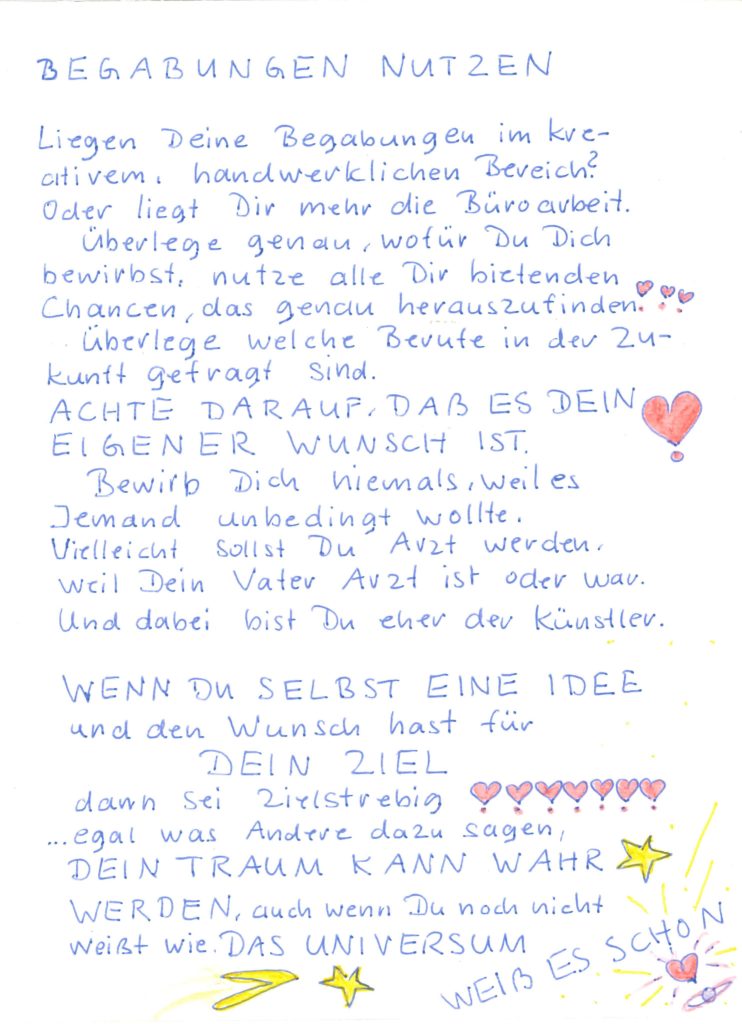 BEGABUNGEN NUTZEN
Liegen Deine Begabungen im kre-
ativem, handwerklichen Bereich?
Oder liegt Dir mehr die Büroarbeit.
Überlege genau, wofür Du Dich
bewirbst, nutze alle Dir bietenden
Chancen, das genau herauszufinden!
Überlege welche Berufe in der Zu-
kunft gefragt sind.
ACHTE DARAUF, DAß ES DEIN
EIGENER WUNSCH IST.
Bewirb Dich niemals, weil es
Jemand unbedingt wollte.
Vielleicht sollst Du Arzt werden,
weil Dein Vater Arzt ist oder war.
Und dabei bist Du eher der Künstler.
WENN DU SELBST EINE IDEE
und den Wunsch hast für
DEIN ZIEL
dann sei zielstrebig
...egal was Andere dazu sagen,
DEIN TRAUM KANN WAHR
WERDEN, auch wenn Du noch nicht
weißt wie. DAS UNIVERSUM
WEIß ES SCHON